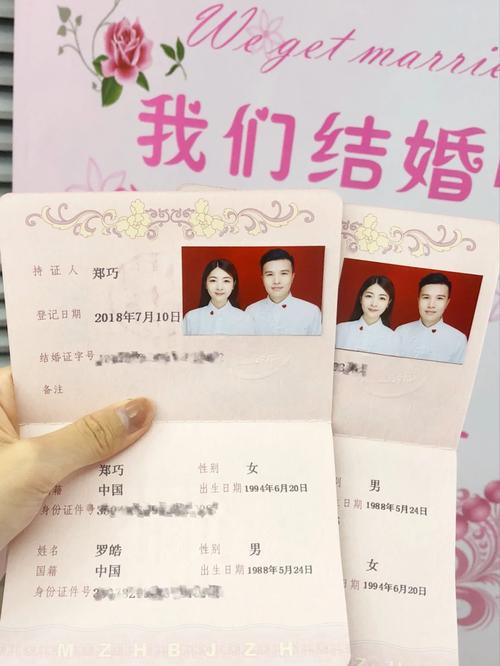 We get marrie
我们结婚
持证人 郑巧
登记日期 2018年7月10日
结婚证字号
备注
郑巧 性别 女
国籍 中国 出生日期 1994年6月20日
身份证件号
姓名 罗皓 性别 男
国籍 中国 出生日期 1988年5月24日
身份证件号
M Z H B J Z H
男
1988年5月24日
女
1994年6月20日